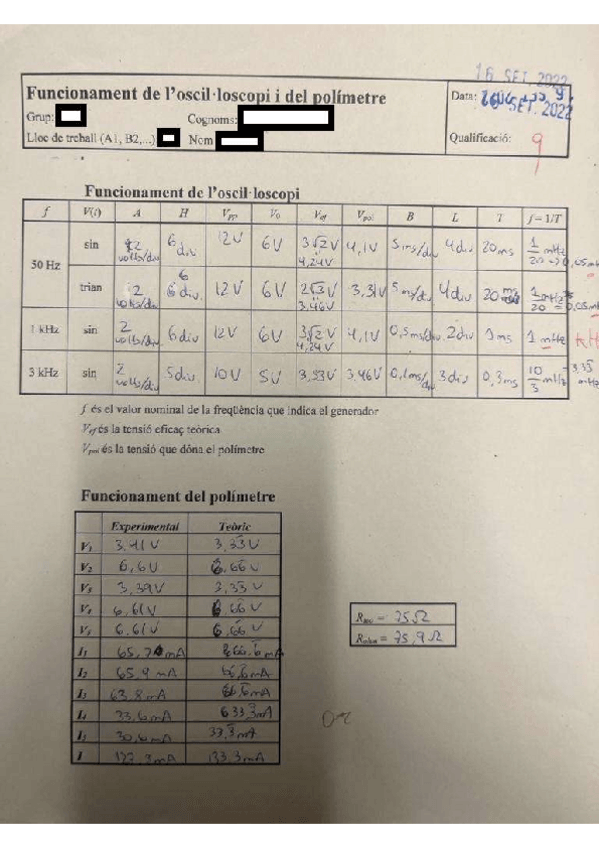 16 SET. 2022
Funcionament de l'oscil·loscopi i del polímetre
Data: SET. 2022
Grup: Cognoms:
Lloc de treball (A1, B2,...) Nom
Qualificació: 9
Funcionament de l'oscil·loscopi
f V(t) A H Vpp V0 Vef Vpol B L T f=1/T
50 Hz sin 2 volts/div 6 div 12V 6V 3√2 V 4,24V 4,1V 5ms/div 4div 20ms 1/20 mHz = 0,05m
trian 2 volts/div 6 div 12V 6V 2√3 V 3.46V 3,31V 5ms/div 4div 20ms 1/20 mHz = 0,05m
1 kHz sin 2 volts/div 6div 12V 6V 3√2V 4,24V 4.1V 0,5ms/div 2div 1ms 1 mHz KH
3 kHz sin 2 volts/div 5div 10V 5V 3,53V 3,46V 0,1ms/div 3div 0,3ms 10/3 mHz
f és el valor nominal de la freqüència que indica el generador
Vef és la tensió eficaç teòrica
Vpol és la tensió que dóna el polímetre
Funcionament del polímetre
Experimental Teòric
V1 3.41V 3,33V
V2 6,6V 6.66V
V3 3,39V 3,33V
V4 6.61V 6.66V
V5 6.61V 6.66V
Rteo = 75Ω
Robs = 75,9Ω
I1 mA mA
I2 65.9mA 66,6mA
I3 63.8mA 66,6mA
I4 33.6mA mA
I5 mA 33,3mA
I mA 133.3mA